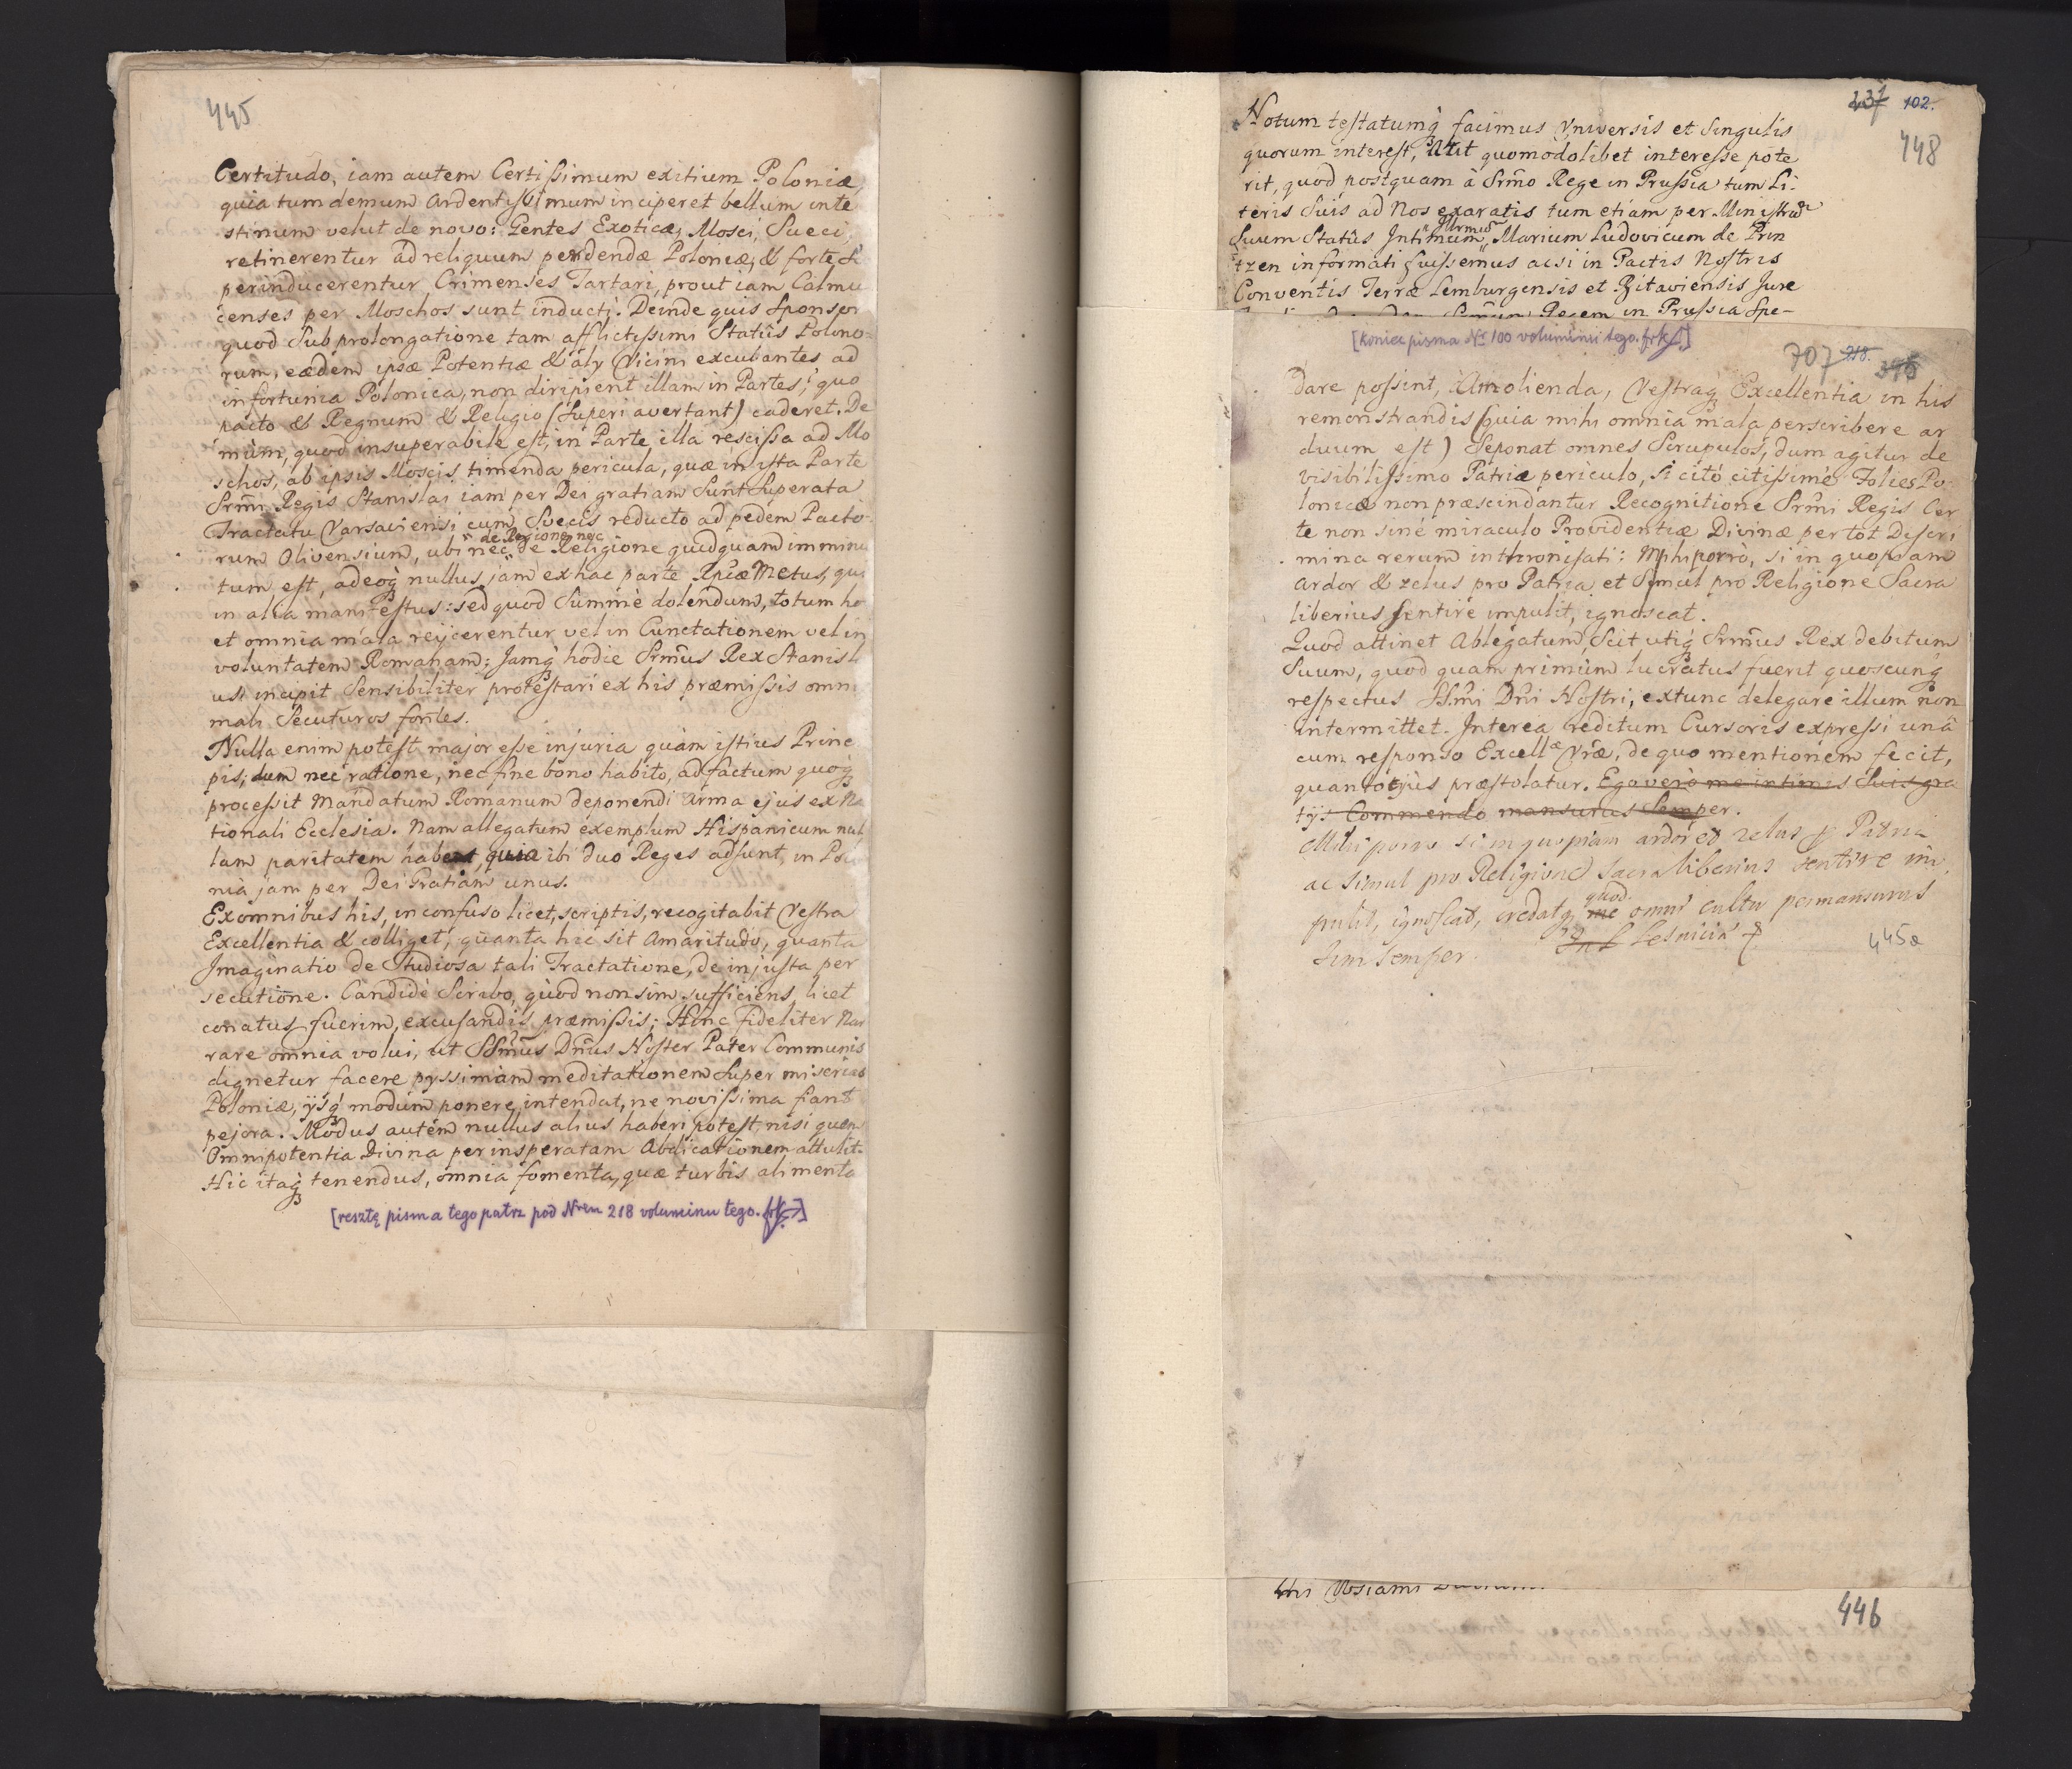 445
Certitudo, iam autem Certissimum exitium Poloniæ,
quia tum demum ardentissimum inciperet bellum inte
stinum velut de novo: Gentes Exoticæ, Mosci, Sueci,
retinerentur ad reliquum perdendæ Poloniæ, & forte &
perinducerentur Crimenses Tartari, prout iam Calmu
censes per Moschos sunt inducti. Deinde quis Sponsor
quod Sub prolongatione tam afflictissimi Statûs Polono-
rum, eædem ipsæ Potentiæ & alÿ Vicini excubantes ad
infortunia Polonica, non diripient illam in Partes; quo
pacto & Regnum & Religio (Superi avertant) caderet. De
mùm, quod insuperabile est, in Parte illa rescissa ad Mo
schos, ab ipsis Moscis timenda pericula, quæ in ista Parte
Srm̃i Regis Stanislai iam per Dei gratiam Sunt Superata
Tractatu Varsaviensi cum Svecis reducto ad pedem Pacto-
rum Olivensium, ubi nec de Regione nec de Religione quidquam imminu
tum est, adeoq́ nullus jam ex hac parte Rp̃cæ Metus, qui
in alia manifestus: sed quod Summè dolendum, totum ho
et omnia mala reijcerentur vel in Cunctationem vel in
voluntatem Romanam; Jamq́ hodie Srm̃us Rex Stanisl
us incipit Sensibiliter protestari ex his præmissis omn
mali Secuturos fontes.
Nulla enim potest major esse injuria quàm istius Princ
pis; dum nec ratione, nec fine bono habito, ad factum quoq́
processit Mandatum Romanum deponendi Arma ejus ex Na
tionali Ecclesia. Nam allegatum exemplum Hispanicum nul
lam paritatem habet, quia ibi duo Reges adsunt, in Polo
nia jam per Dei Gratiam unus.
Ex omnibus his, in confuso licet, scriptis, recogitabit Vestra
Excellentia & colliget, quanta hic sit Amaritudo, quanta
Imaginatio de Studiosa tali Tractatione, de injusta per
secutione. Candidè Scribo, quod non sim sufficiens, licet
conatus fuerim, excusandis præmissis; Hinc fideliter Nar
rare omnia volui, ut SSm̃us Dñus Noster Pater Communis
dignetur facere pyssimam meditationem Super miserias
Poloniæ, ÿsq́ modum ponere intendat, ne novissima fiant
pejora. Modus autem nullus alius haberi potest, nisi quem
Omnipotentia Divina per insperatam Abdicationem attulit.
Hic itaq́ tenendus, omnia fomenta, quæ turbis alimenta
[resztę pisma tego patrz pod Nrem 218 voluminu tego.]
237 102.
448
Notum testatumq́ facimus Universis et Singulis
quorum interest, Aut quomodolibet interesse pote
rit, quod postquam â Srm̃o Rege in Prussia tum Li-
teris Suis ad Nos exaratis tum etiam per Ministrum
Suum Statûs Intimum, Marium Ludovicum de Prin
tzen informati fuissemus acsi in Pactis Nostris
Conventis Terræ Lemburgensis et Bitaviensis Jure
Regem in Prussia Spe-
[Koniec pisma No 100 voluminu tego.]
707 218. 
dare possint, Amolienda, Vestraq́ Excellentia in his
remonstrandis (quia mihi omnia mala perscribere ar
duum est) Seponat omnes Scrupulos, dum agitur de
visibilissimo Patriæ periculo, si citò citissimè Folies Po
lonicæ non præscindantur Recognitione Srm̃i Regis Cer
te non sinè miraculo Providentiæ Divinæ per tot Discri
mina rerum inthronisati: Mihi porrò, si in quopiam
ardor & zelus pro Patria et Simul pro Religione Sacra
liberius sentire impulit, ignoscat.
Quod attinet Ablegatum, Scit utiq́ Srm̃us Rex debitum
Suum, quod quam primùm lucratus fuerit quoscunq́
respectus SSm̃i Dñi Nostri, extunc delegare illum non
intermittet. Interea reditum Cursoris expressi unâ
cum responso Excellæ Vræ, de quo mentionem fecit,
quantocyùs præstolatur. Ego verò me intimis Suis gra
tÿs Commendo mansurus Semper.
Mihi porro si in quopiam ardor et zelus p Patria
ac Simul pro Religione Sacra liberius sentire im
pulit, ignoscat, credatq́ me quod omni cultu permansurus
Sim Semper.
445a
446